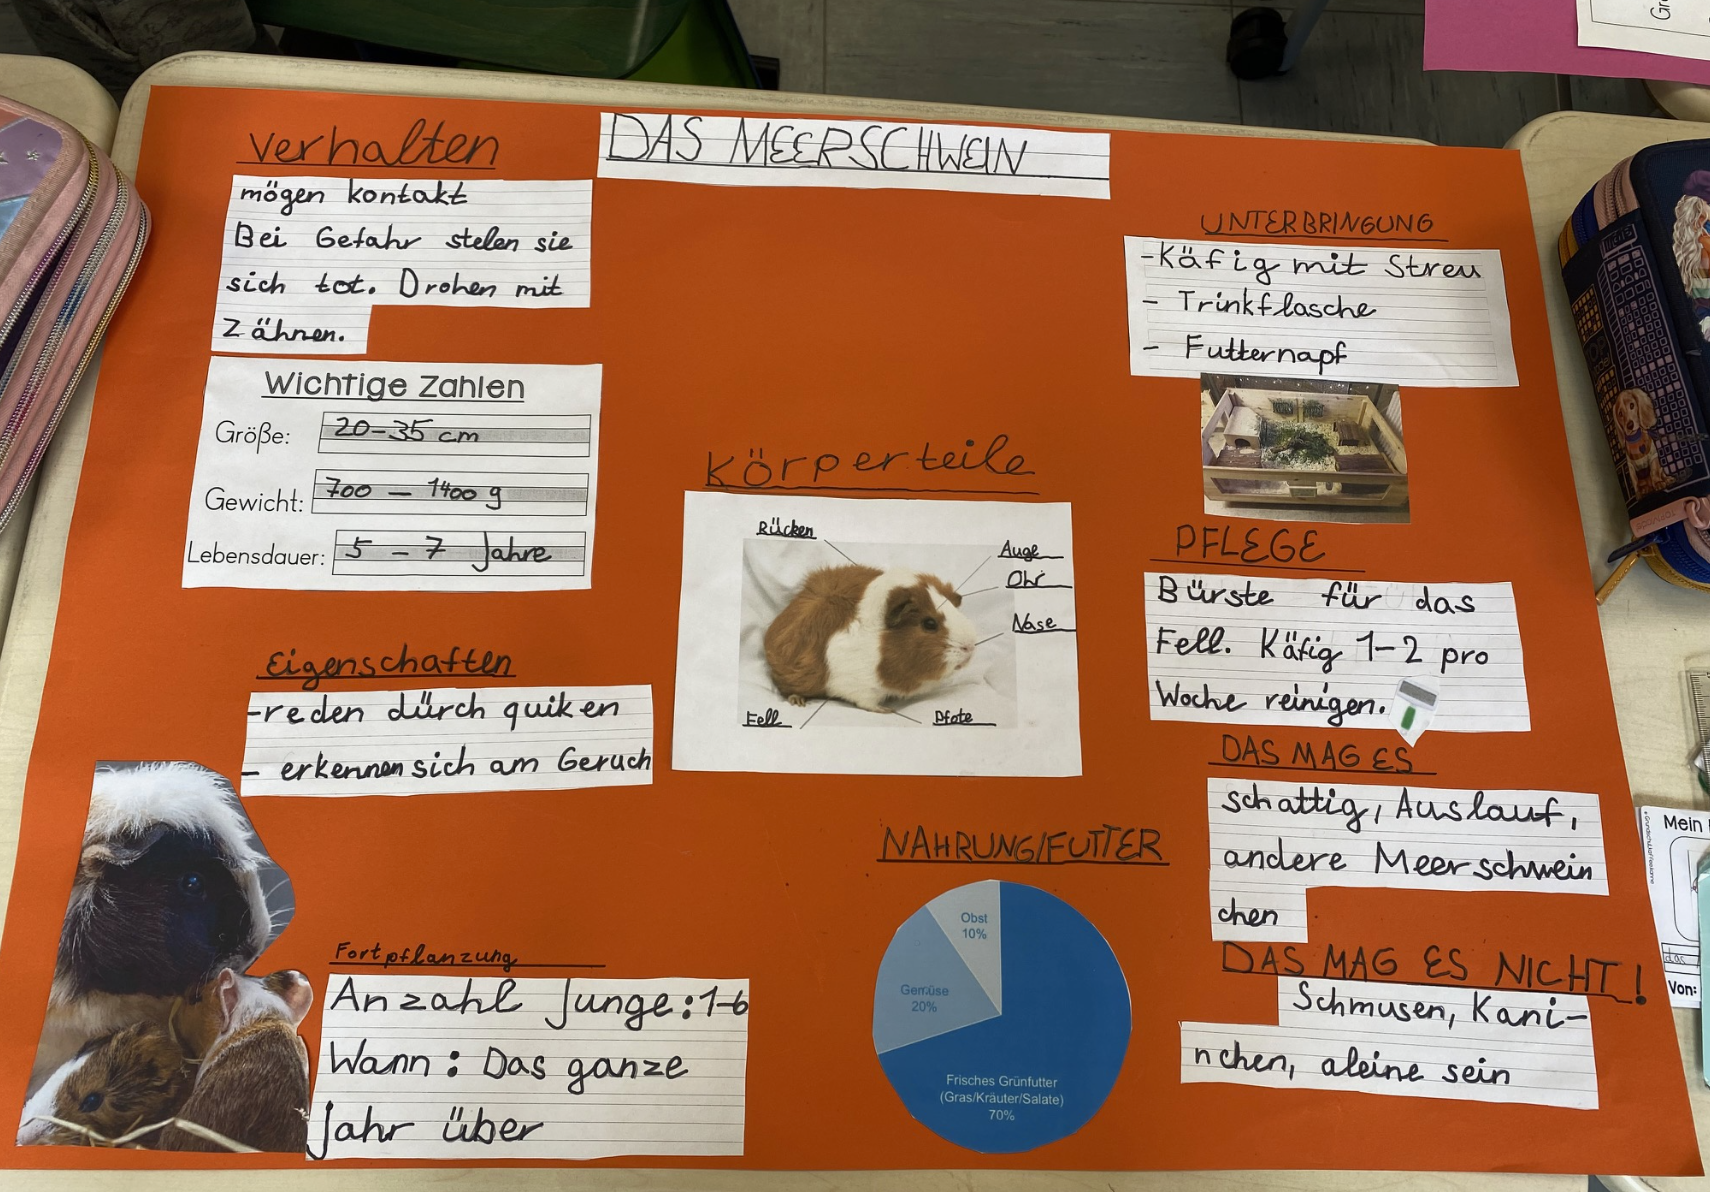 DAS MEERSCHWEIN
Verhalten
mögen kontakt
Bei Gefahr stelen sie
sich tot. Drohen mit
Zähnen.
Wichtige Zahlen
Größe: 20-35 cm
Gewicht: 700 - 1400 g
Lebensdauer: 5 - 7 Jahre
Eigenschaften
-reden dürch quiken
- erkennen sich am Geruch
Fortpflanzung
Anzahl Junge: 1-6
Wann: Das ganze
Jahr über
Körperteile
Rücken
Auge
Ohr
Nase
Fell
Pfote
NAHRUNG/FUTTER
Obst
10%
Gemüse
20%
Frisches Grünfutter
(Gras/Kräuter/Salate)
70%
UNTERBRINGUNG
-Käfig mit Streu
- Trinkflasche
- Futternapf
PFLEGE
Bürste für das
Fell. Käfig 1-2 pro
Woche reinigen.
DAS MAG ES
schattig, Auslauf,
andere Meerschwein
chen
DAS MAG ES NICHT!
Schmusen, Kani-
nchen, aleine sein
Mein
das
Von: